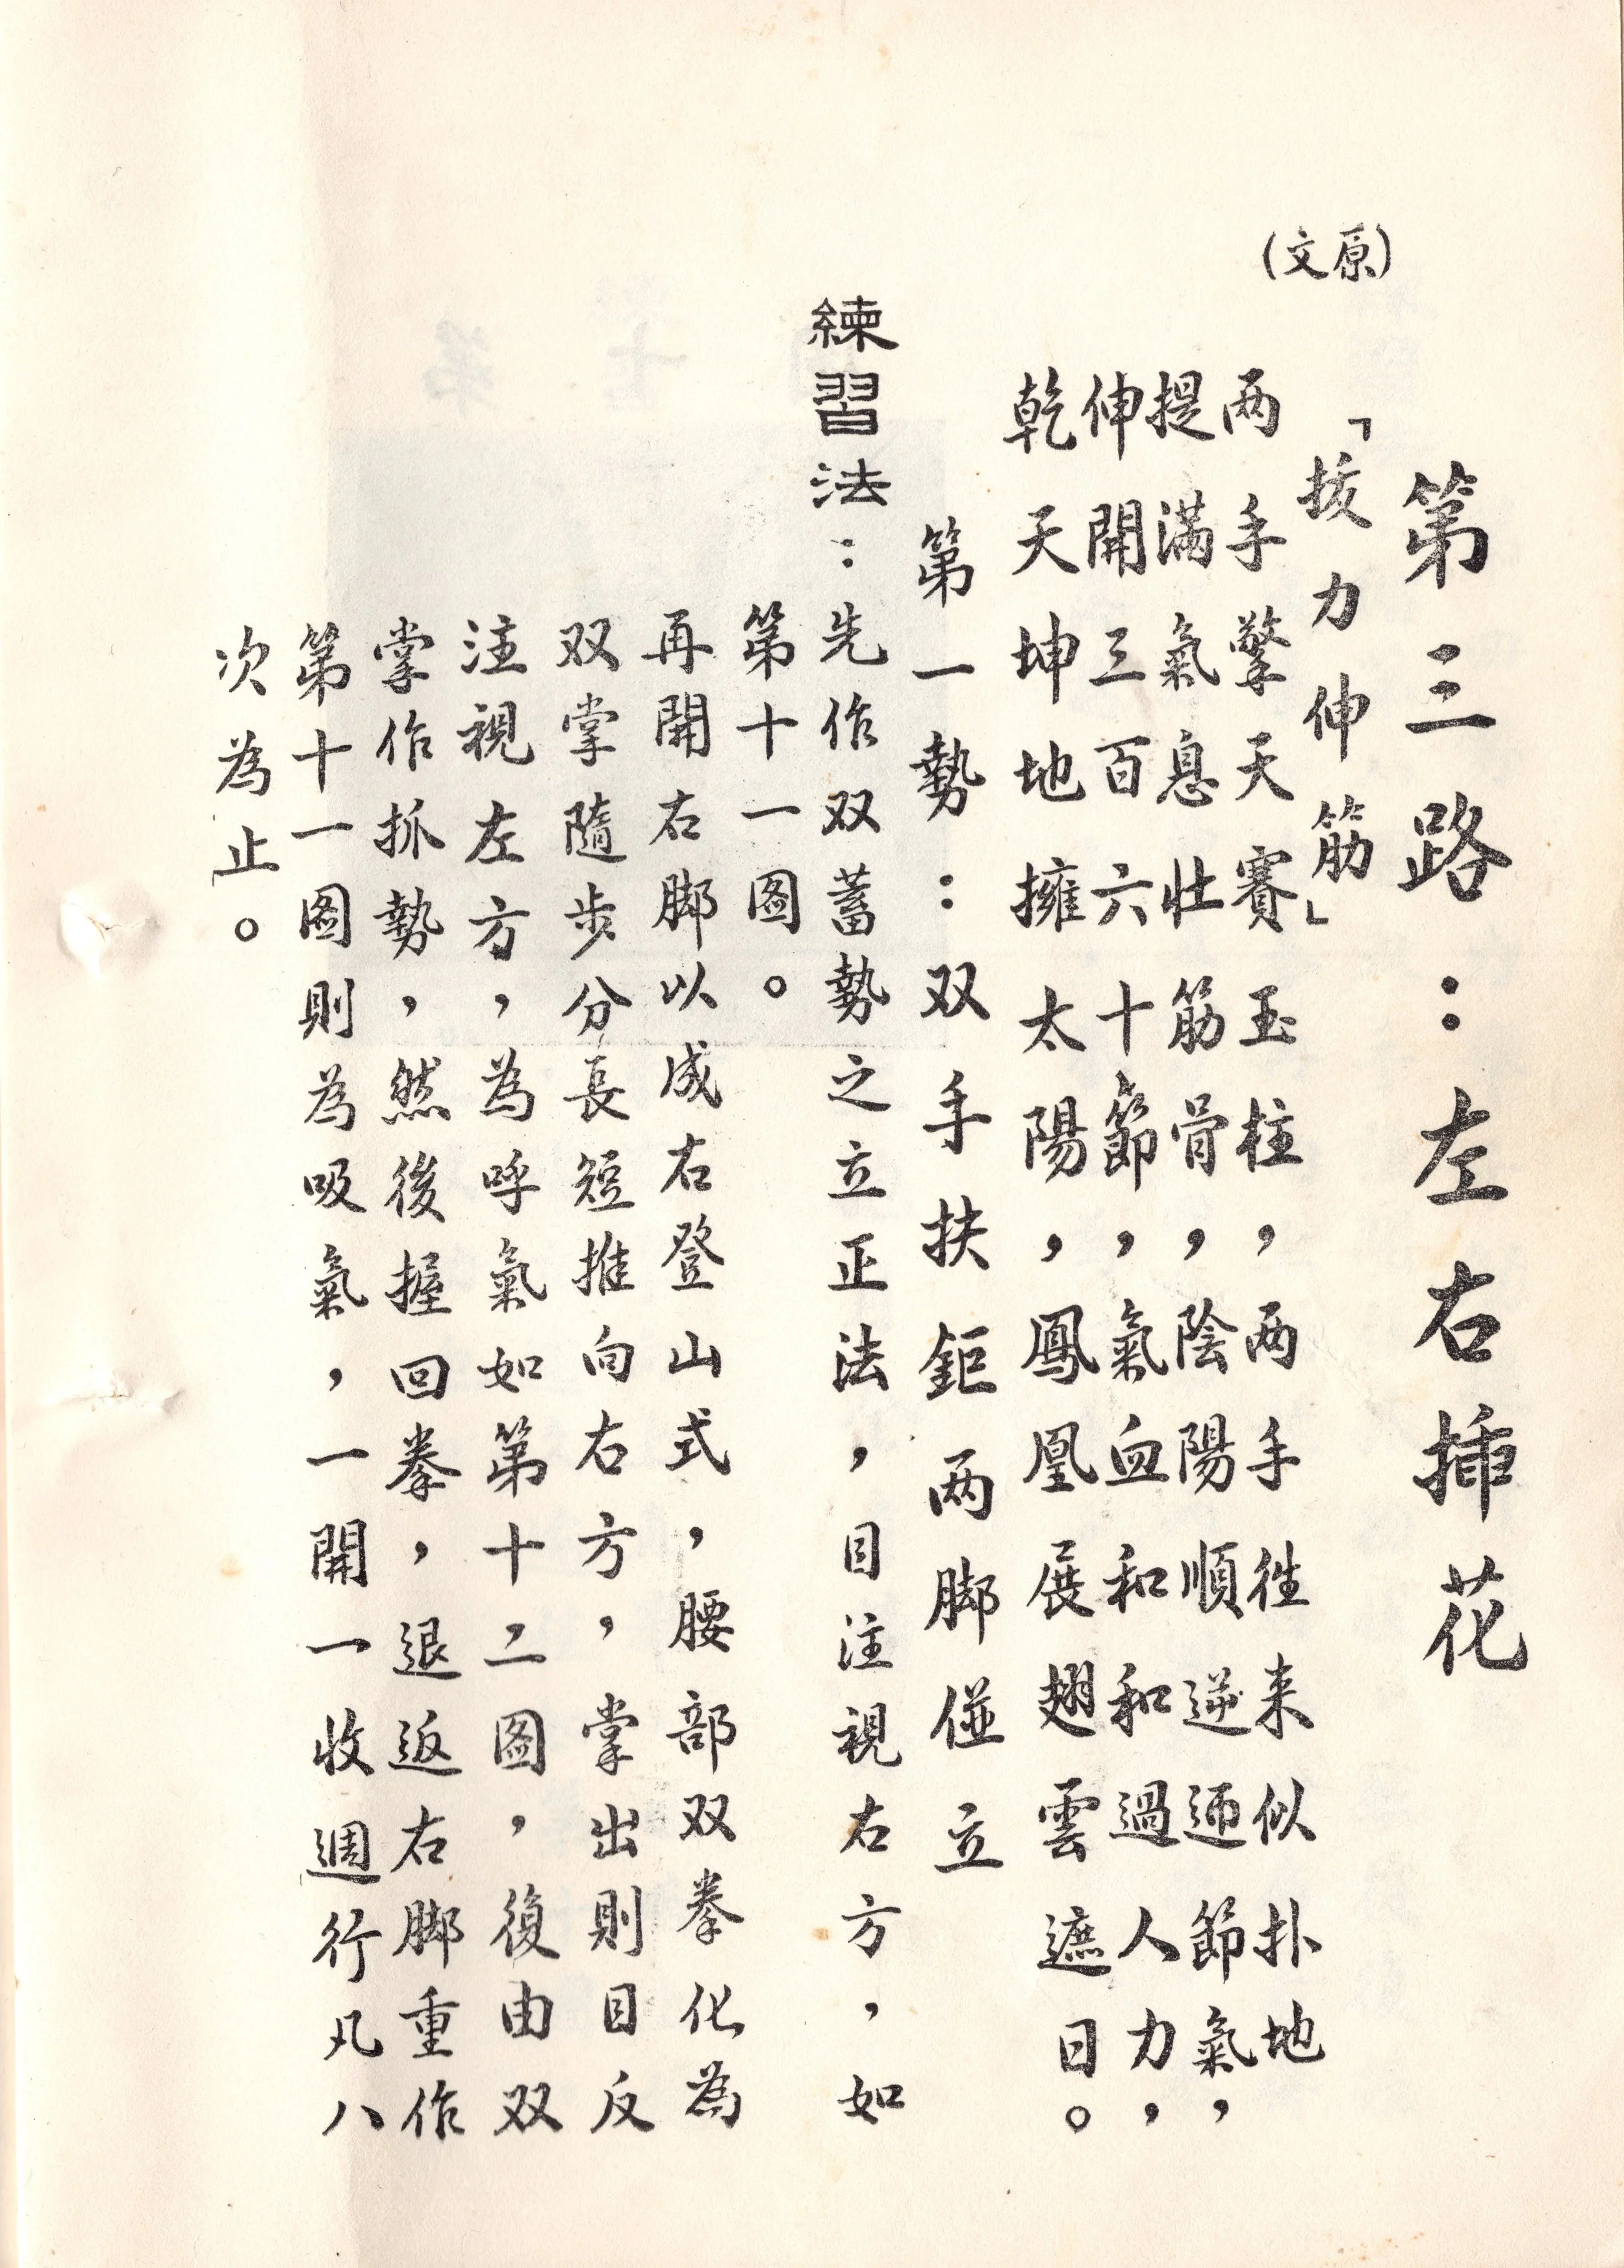 第三路：左右揷花
(原文)
「拔力伸筋」
两手擎天賽玉柱，两手徃来似扑地
提满氣息壯筋骨，陰陽順逆通節氣，
伸開三百六十節，氣血和和過人力，
乾天坤地擁太陽，鳳凰展翅雲遮日。
第一勢：双手扶鉅两脚並立
練習法：先作双蓄勢之立正法，目注視右方，如
第十一图。
再開右脚以成右登山式，腰部双拳化為
双掌隨步分長短推向右方，掌出則目反
注視左方，為呼氣如第十二图，復由双
掌作抓勢，然後握回拳，退返右脚重作
第十一图則為吸氣，一開一收週行凡八
次為止。